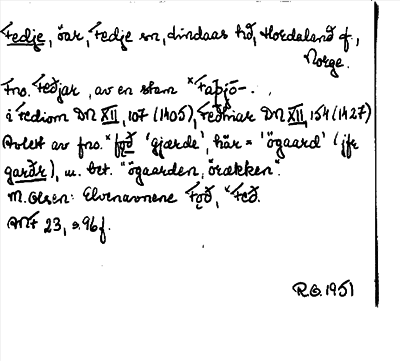 Fedje, öar, Fedje sn, Lindaas hd, Hordaland f.,
Norge.
Fno. Feðjar, av en stam *Faþjō-.
i Fediom DN XII, 107 (1405), Fedhiar DN XII, 154 (1427)
Avlett av fno. *fǫð 'gjærde', här = 'ögaard' (jfr
garðr), u. bet. "ögaarden, örækken".
M. Olsen: Elvenavnene Fǫð, *Feð.
ANF 23, s. 96 f.
R.O. 1951